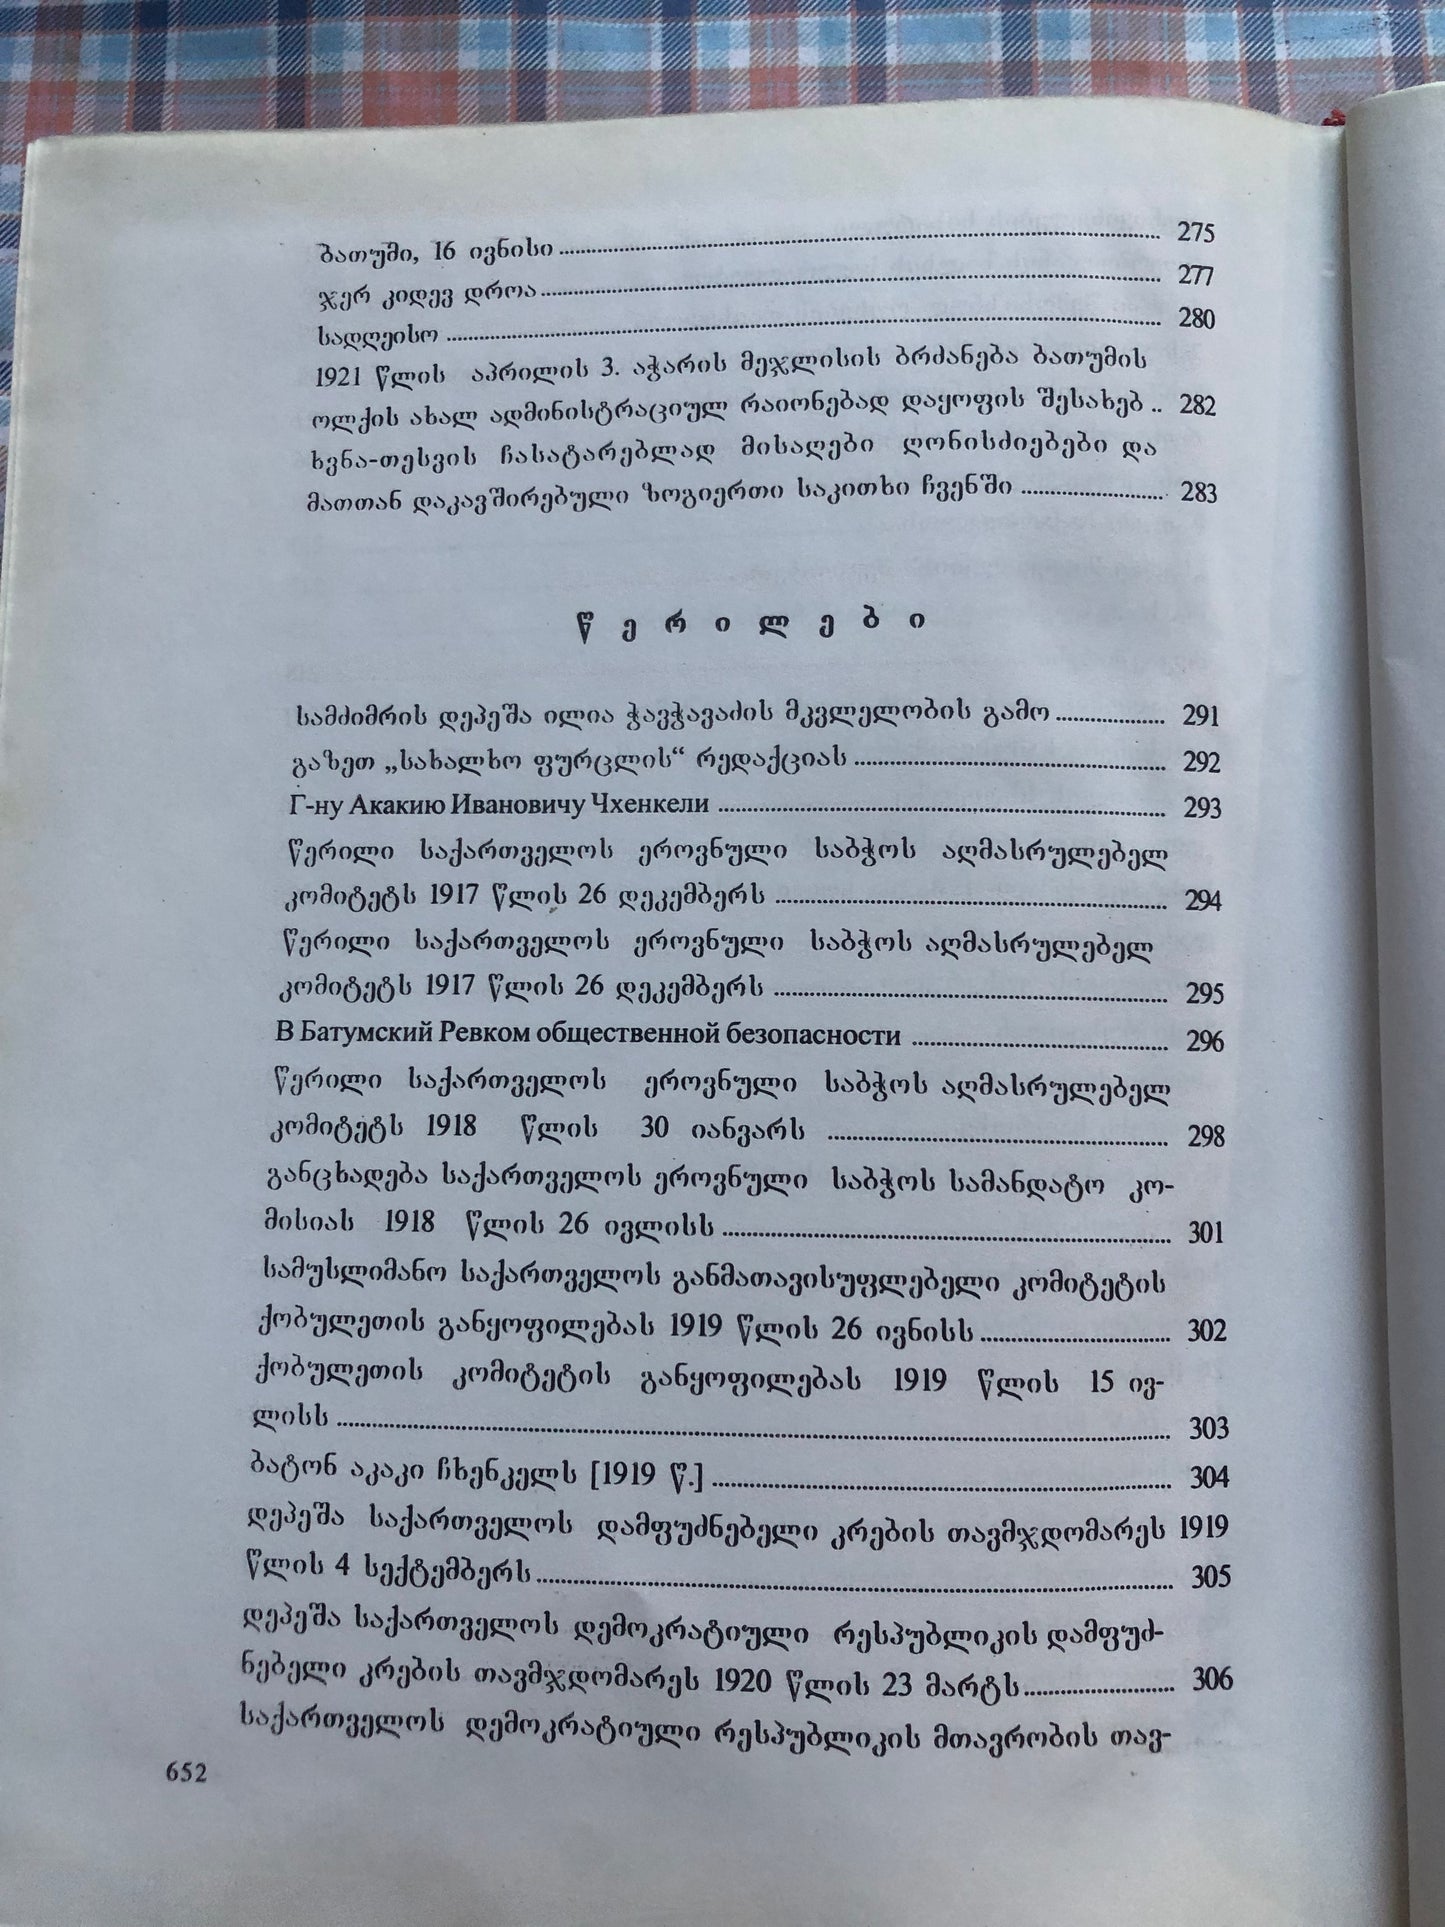 ბათუმი, 16 ივნისი ........ 275
ჯერ კიდევ დროა ........ 277
სადღეისო ........ 280
1921 წლის აპრილის 3. აჭარის მეჯლისის ბრძანება ბათუმის
ოლქის ახალ ადმინისტრაციულ რაიონებად დაყოფის შესახებ .. 282
ხვნა-თესვის ჩასატარებლად მისაღები ღონისძიებები და
მათთან დაკავშირებული ზოგიერთი საკითხი ჩვენში ........ 283
წერილები
სამძიმრის დეპეშა ილია ჭავჭავაძის მკვლელობის გამო ........ 291
გაზეთ „სახალხო ფურცლის“ რედაქციას ........ 292
Г-ну Акакию Ивановичу Чхенкели ........ 293
წერილი საქართველოს ეროვნული საბჭოს აღმასრულებელ
კომიტეტს 1917 წლის 26 დეკემბერს ........ 294
წერილი საქართველოს ეროვნული საბჭოს აღმასრულებელ
კომიტეტს 1917 წლის 26 დეკემბერს ........ 295
В Батумский Ревком общественной безопасности ........ 296
წერილი საქართველოს ეროვნული საბჭოს აღმასრულებელ
კომიტეტს 1918 წლის 30 იანვარს ........ 298
განცხადება საქართველოს ეროვნული საბჭოს სამანდატო კო-
მისიას 1918 წლის 26 ივლისს ........ 301
სამუსლიმანო საქართველოს განმათავისუფლებელი კომიტეტის
ქობულეთის განყოფილებას 1919 წლის 26 ივნისს ........ 302
ქობულეთის კომიტეტის განყოფილებას 1919 წლის 15 ივ-
ლისს ........ 303
ბატონ აკაკი ჩხენკელს [1919 წ.] ........ 304
დეპეშა საქართველოს დამფუძნებელი კრების თავმჯდომარეს 1919
წლის 4 სექტემბერს ........ 305
დეპეშა საქართველოს დემოკრატიული რესპუბლიკის დამფუძ-
ნებელი კრების თავმჯდომარეს 1920 წლის 23 მარტს ........ 306
საქართველოს დემოკრატიული რესპუბლიკის მთავრობის თავ-
652